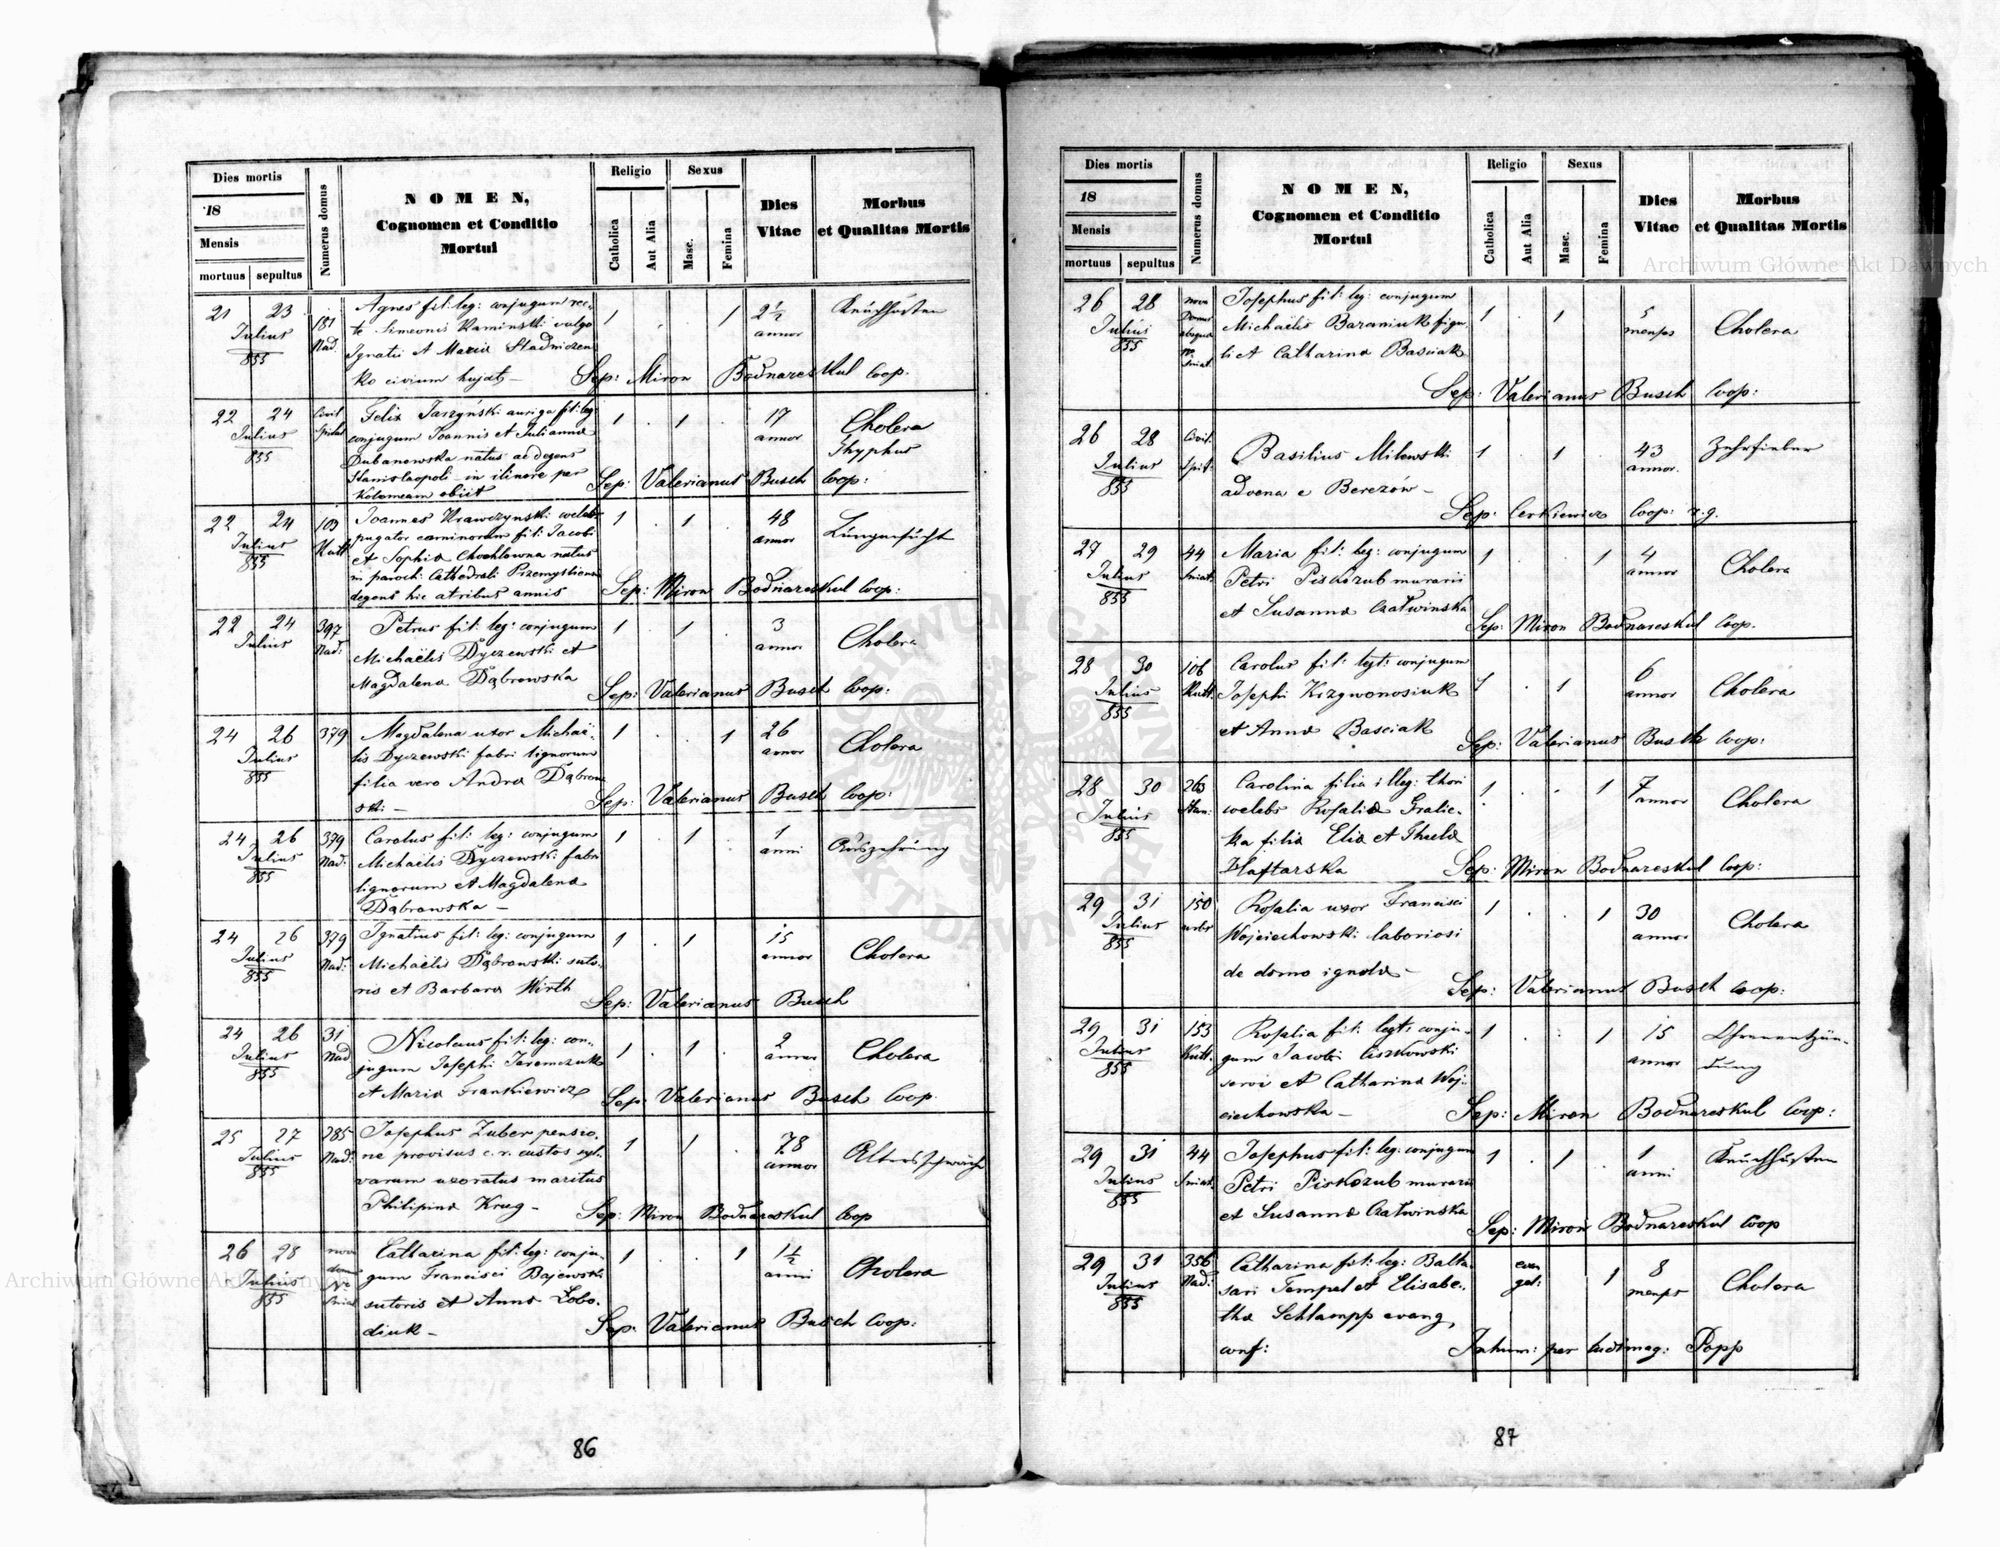 Dies mortis
18
Mensis
mortuus sepultus
Numerus domus
NOMEN,
Cognomen et Conditio
Mortui
Religio
Catholica
Aut Alia
Sexus
Masc.
Femina
Dies
Vitae
Morbus
et Qualitas Mortis
21 23 181 Agnes fil: leg: conjugum rec- 1 . . 1 2½ Keuchhusten
Julius Nad. te Simeonis Kaminski vulgo annor
855 Ignatii et Maria Stadniczen
ko civium hujat: – Sep: Miron Bodnareskul Coop.
22 24 Civil Felix Jarzyński auriga fil: leg: 1 . 1 . 17 Cholera
Julius Spital conjugum Joannis et Julianna annor Thyphus
855 Dubanowska natus ac degens
Stanislaopoli – in itinere per Sep: Valerianus Busch Coop:
Kolomeam obiit
22 24 103 Joannes Krawczynski coelebs 1 . 1 . 48 Lungensucht
Julius Kutt. purgator caminorum fil: Jacobi annor
855 et Sophia Chochlowna natus
in paroch: Cathedrali Przemysliensi Sep: Miron Bodnareskul Coop:
degens hic a tribus annis
22 24 397 Petrus fil: leg: conjugum 1 . 1 . 3 Cholera
Julius Nad: Michaëlis Dyczewski et annor
Magdalena Dąbrowska Sep: Valerianus Busch Coop:
24 26 379 Magdalena uxor Michaë- 1 . . 1 26 Cholera
Julius lis Dyczewski fabri lignorum annor
855 filia vero Andrea Dąbrow
ski – Sep: Valerianus Busch Coop:
24 26 379 Carolus fil: leg: conjugum 1 1 . 1
Julius Nad: Michaëlis Dyczewski fabri anni
855 lignorum et Magdalena
Dąbrowska –
24 26 379 Ignatius fil: leg: conjugum 1 . 1 15 Cholera
Julius Nad: Michaëlis Dąbrowski suto- annor
855 ris et Barbara Wirth Sep: Valerianus Busch
24 26 31 Nicolaus fil: leg: con- 1 . 1 . 2 Cholera
Julius Nad jugum Josephi Jaremczuk annor
855 et Maria Frankiewicz Sep: Valerianus Busch Coop.
25 27 285 Josephus Zuber pensio- 1 1 . 78 Altersschwäche
Julius Nad: ne provisus c. r. custos syl- annor
855 varum uxoratus maritus
Philipina Krug – Sep: Miron Bodnareskul Coop
26 28 nova Catharina fil: leg: conju- 1 . . 1 1½ Cholera
Julius domus Nr gum Francisci Bajewski anni
855 Sniat sutoris et Anna Lobo-
diuk – Sep. Valerianus Busch Coop:
86
Dies mortis
18
Mensis
mortuus sepultus
Numerus domus
NOMEN,
Cognomen et Conditio
Mortui
Religio
Catholica
Aut Alia
Sexus
Masc.
Femina
Dies
Vitae
Morbus
et Qualitas Mortis
26 28 nova Josephus fil: leg: conjugum 1 . 1 5 Cholera
Julius Domus absque Michaëlis Baraniuk figu- menses
855 Nr Sniat. li et Catharina Basciak
Sep: Valerianus Busch Coop:
26 28 Civil. Basilius Milewski 1 . 1 . 43 Zehrfieber
Julius Spit: advena e Berezów – annor.
855 Sep: Cerkiewicz Coop: r. g.
27 29 44 Maria fil: leg: conjugum 1 . . 1 4 Cholera
Julius Sniat. Petri Piskozub murarii annor
855 et Susanna Czatwinska Sep: Miron Bodnareskul Coop.
28 30 106 Carolus fil: legt: conjugum 1 . 1 6 Cholera
Julius Kutt. Josephi Krzywonosiuk annor
855 et Anna Basciak Sep: Valerianus Busch Coop:
28 30 263 Carolina filia illeg: thori 1 . . 1 7 Cholera
Julius coelebs Rosalia Gralic- annor
855 ka filia Elia et Thecla
Haftarska Sep: Miron Bodnareskul Coop:
29 31 150 Rosalia uxor Francisci 1 . . 1 30 Cholera
Julius urbs Wojciechowski laboriosi annor
855 de domo ignota – Sep: Valerianus Busch Coop:
29 31 153 Rosalia fil: legt: conju- 1 . . 1 15 Ohrenentzün-
Julius Kutt. gum Jacobi Ciszkowski annor dung
855 servi et Catharina Woj-
ciechowska – Sep: Miron Bodnareskul Coop:
29 31 44 Josephus fil: leg: conjugum 1 . 1 . 1 Keuchhusten
Julius Sniat. Petri Piskozub murarii anni
855 et Susanna Czatwinska Sep: Miron Bodnareskul Coop
29 31 356 Catharina fil: leg: Balta- evan 1 8 Cholera
Julius Nad: sari Tempel et Elisabe- gel: menses
855 tha Schlampp evang,
conf: Inhum: per ludimag: Popp
87
Archiwum Główne Akt Dawnych
Archiwum Główne Akt Dawnych
ARCHIWUM GŁÓWNE AKT DAWNYCH